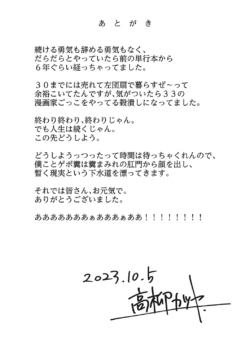 あとがき
続ける勇気も辞める勇気もなく、
だらだらとやっていたら前の単行本から
６年ぐらい経っちゃってました。
３０までには売れて左団扇で暮らすぜ〜って
余裕こいてたんですが、気がついたら３３の
漫画家ごっこをやってる穀潰しになってました。
終わり終わり、終わりじゃん。
でも人生は続くじゃん。
この先どうしよう。
どうしようっつったって時間は待っちゃくれんので、
僕ことゲボ糞は糞まみれの肛門から顔を出し、
暫く現実という下水道を漂ってきます。
それでは皆さん、お元気で。
ありがとうございました。
ああああああああぁぁあああぁああ！！！！！！！！
2023.10.5
高柳カツヤ